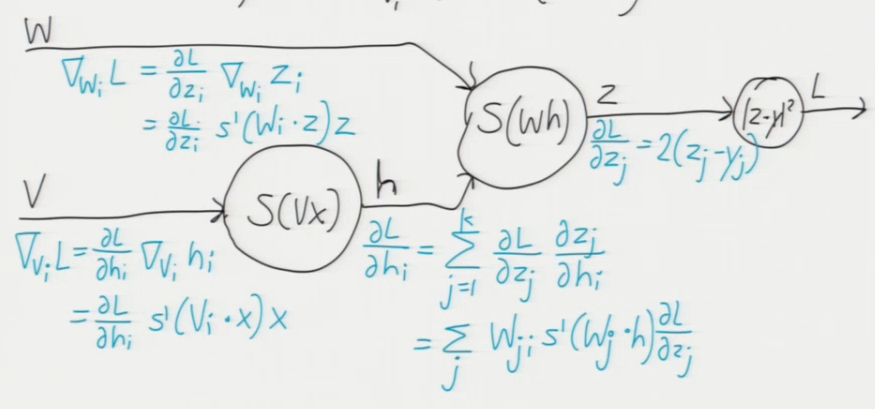 W
∇_{W_i} L = ∂L/∂z_i ∇_{W_i} z_i
= ∂L/∂z_i s'(W_i · z) z
S(Wh)
z
∂L/∂z_j = 2(z_j - y_j)
|z-y|²
L
V
S(Vx)
h
∇_{V_i} L = ∂L/∂h_i ∇_{V_i} h_i
= ∂L/∂h_i s'(V_i · x) x
∂L/∂h_i = Σ_{j=1}^{k} ∂L/∂z_j ∂z_j/∂h_i
= Σ_j W_{ji} s'(W_j · h) ∂L/∂z_j